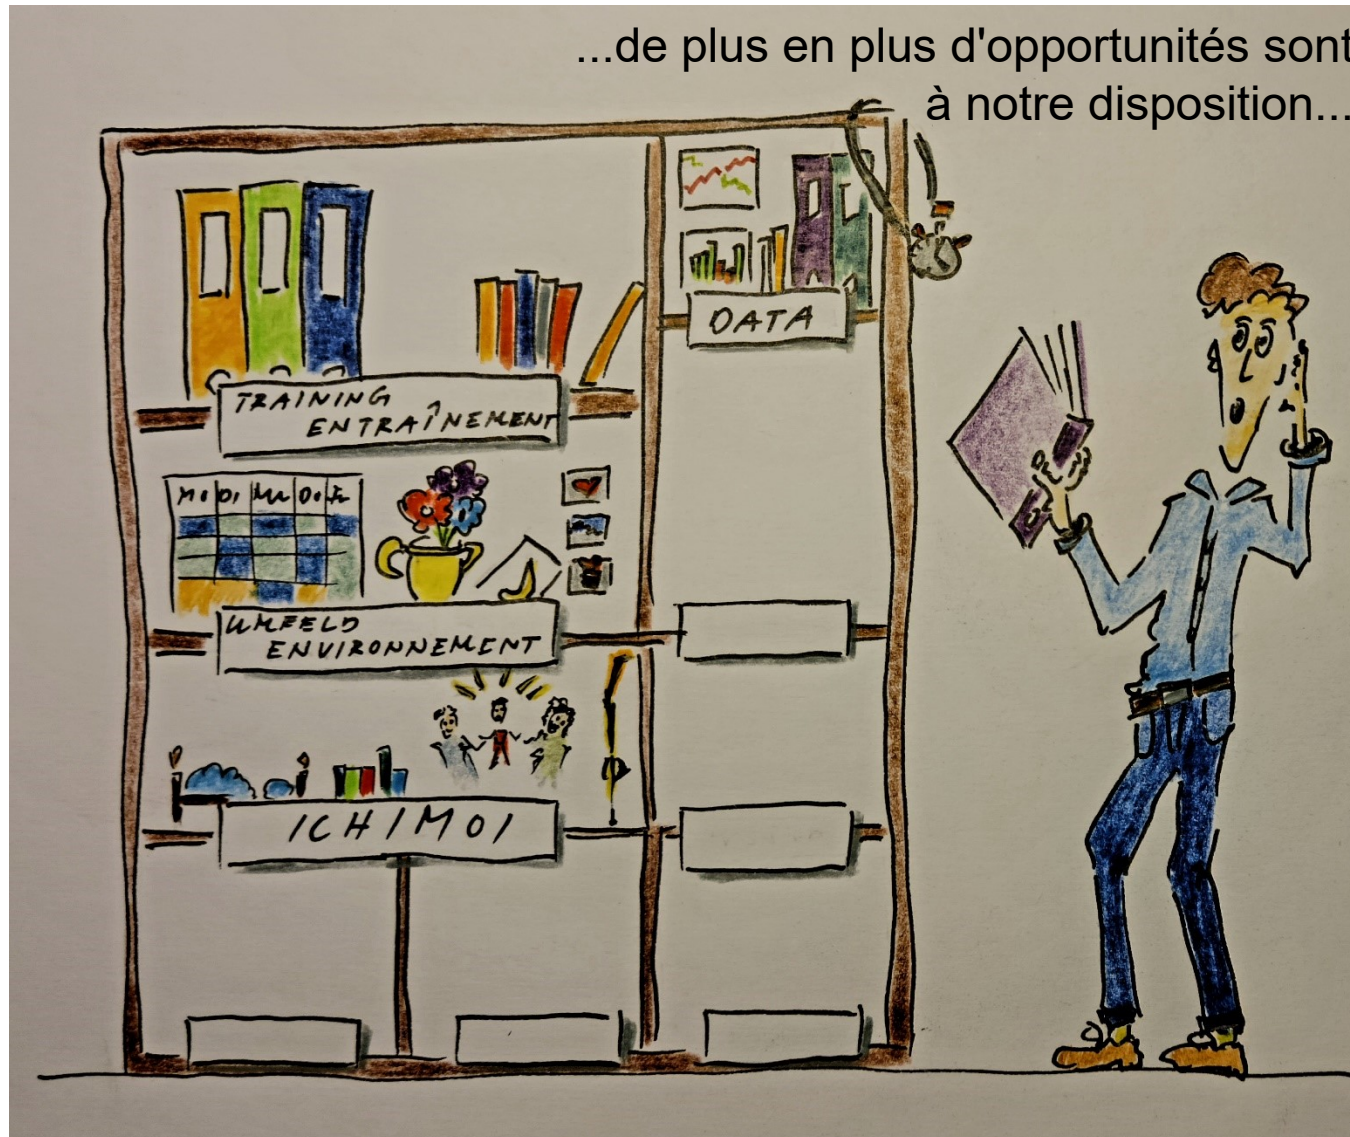 ...de plus en plus d'opportunités sont
à notre disposition...
DATA
TRAINING
ENTRAÎNEMENT
Mo DI Mi Do Fr
UMFELD
ENVIRONNEMENT
ICH/MOI